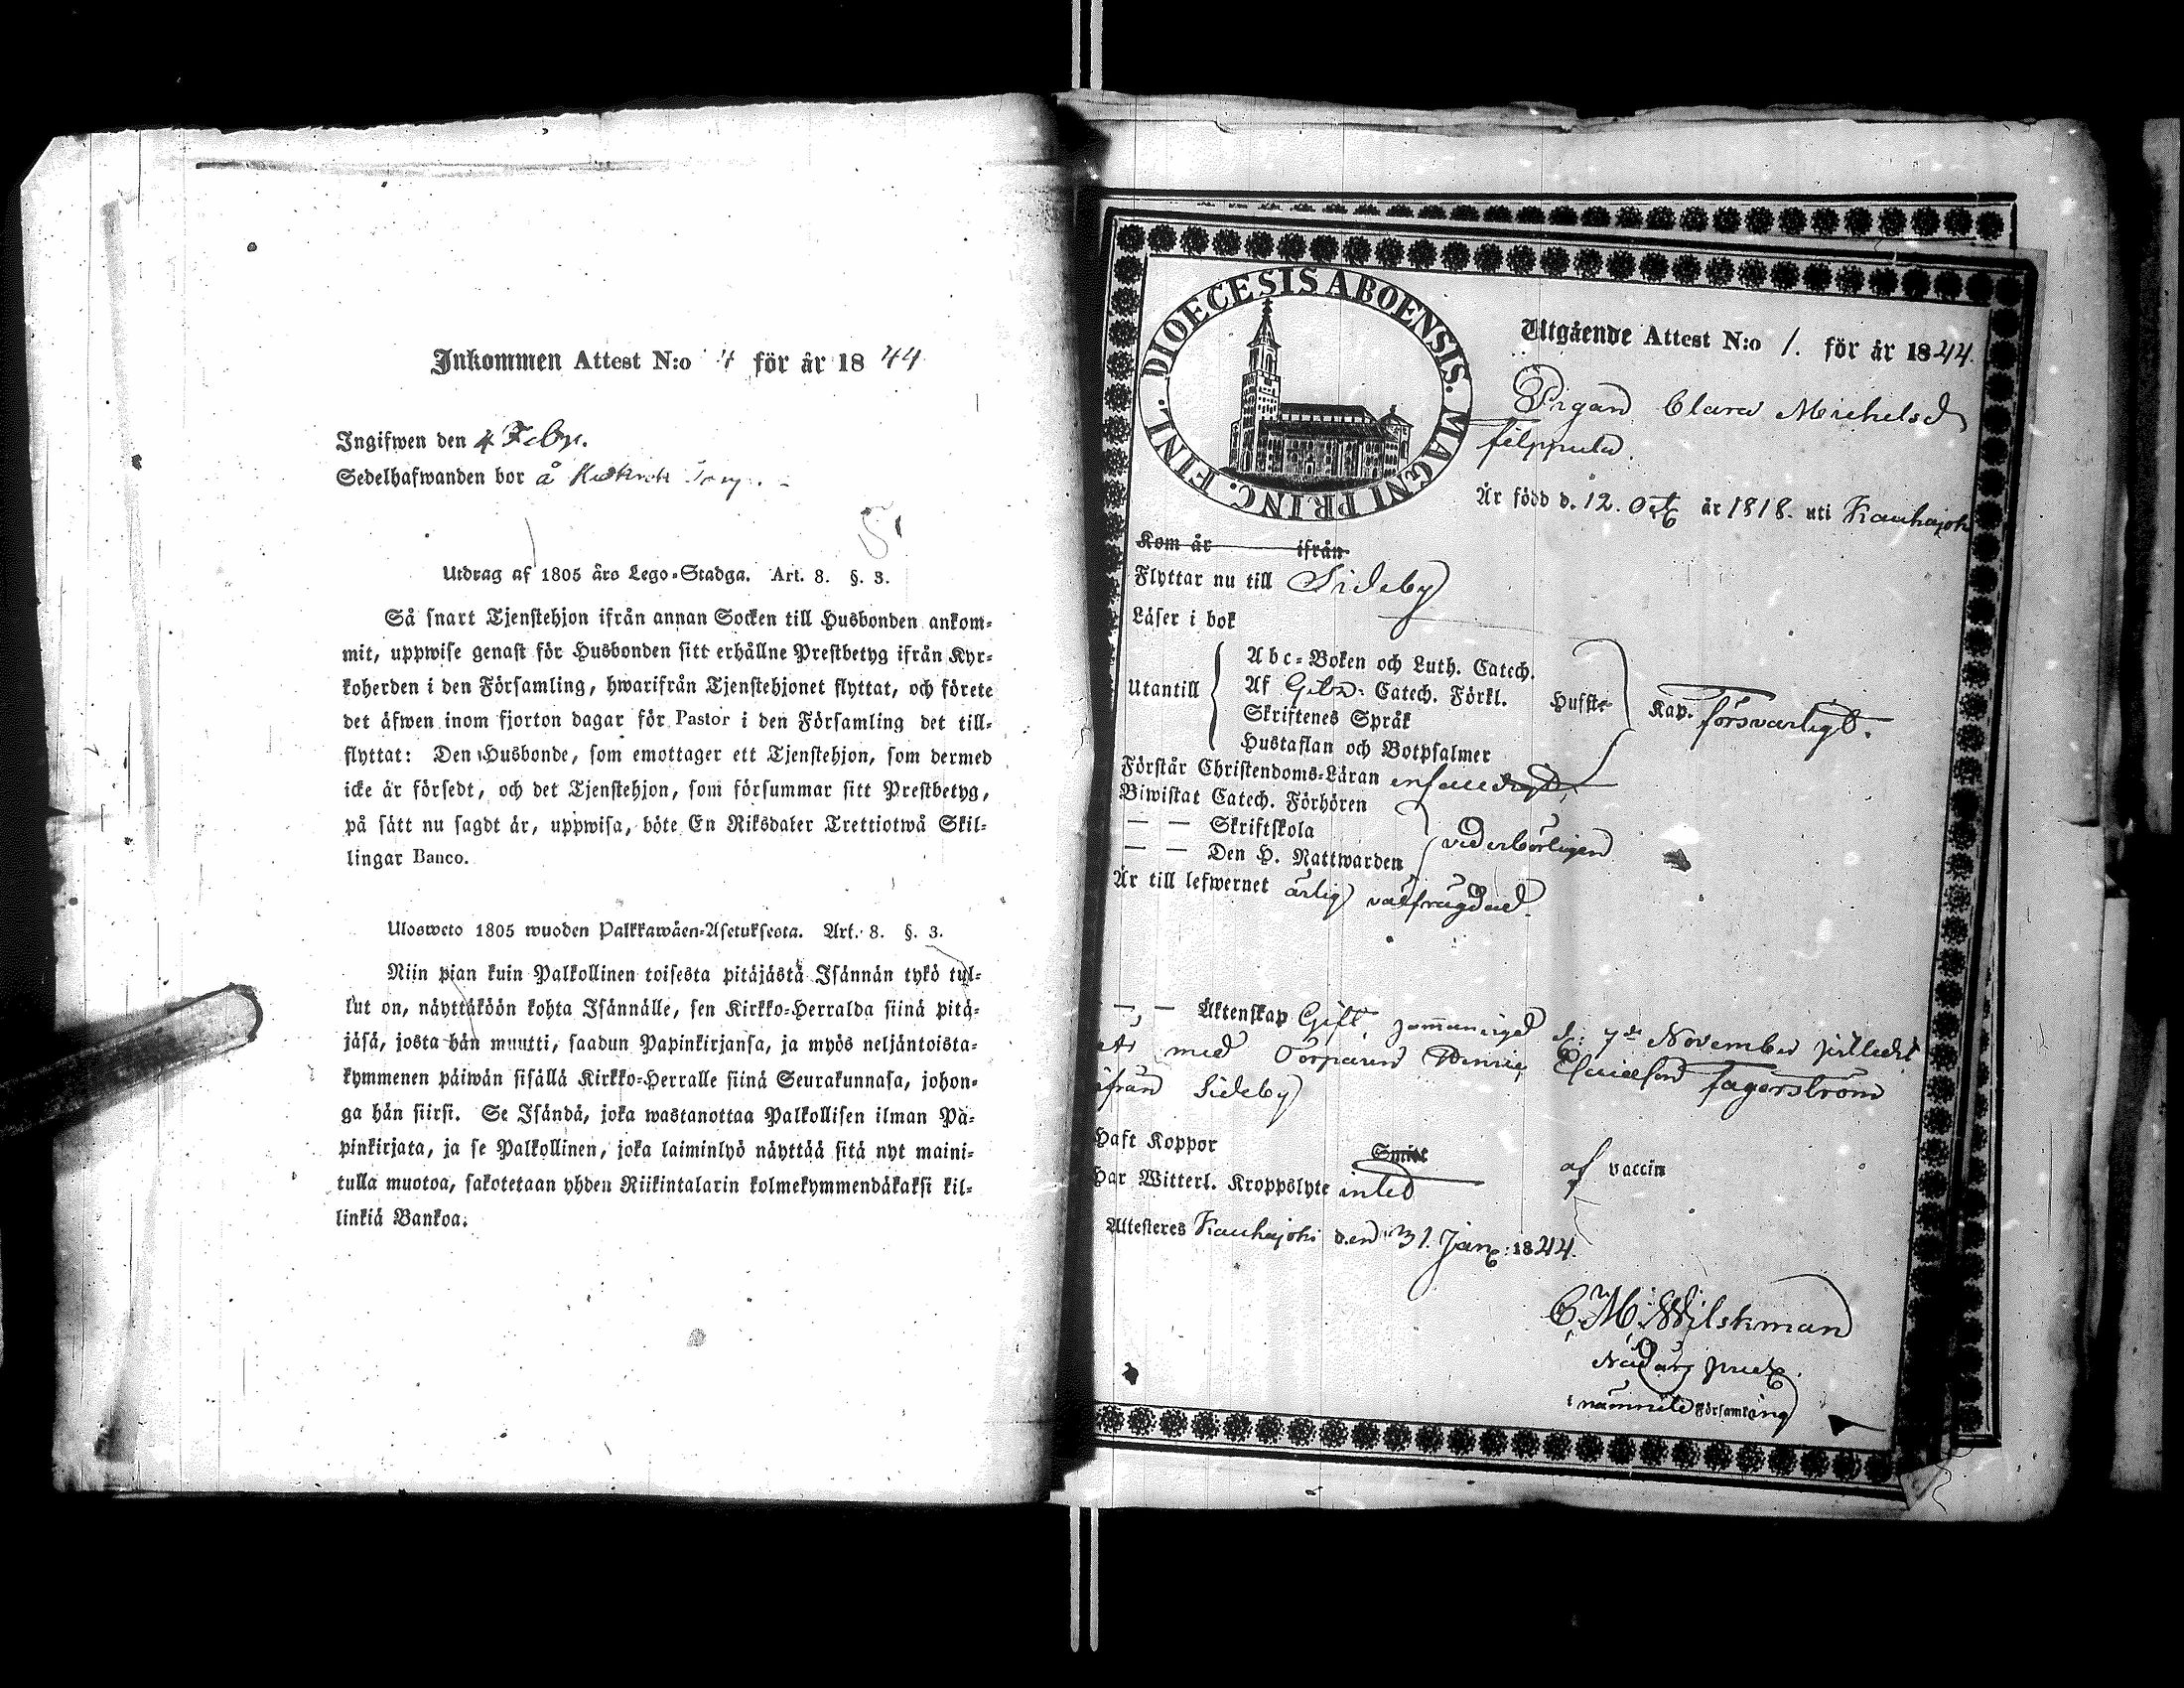 Inkommen Attest N:o 4 för år 1844
Ingifwen den 4 Febr.
Sedelhafwanden bor å
5.
Utdrag af 1805 års Lego-Stadga. Art. 8. §. 3.
Så snart Tjenstehjon ifrån annan Socken till Husbonden ankom-
mit, uppwise genast för Husbonden sitt erhållne Prestbetyg ifrån Kyr-
koherden i den Församling, hwarifrån Tjenstehjonet flyttat, och förete
det äfwen inom fjorton dagar för Pastor i den Församling det till-
flyttat: Den Husbonde, som emottager ett Tjenstehjon, som dermed
icke är försedt, och det Tjenstehjon, som försummar sitt Prestbetyg,
på sätt nu sagdt är, uppwisa, böte En Riksdaler Trettiotwå Skil-
lingar Banco.
Ulosweto 1805 wuoden Palkkawäen-Asetuksesta. Art. 8. §. 3.
Niin pian kuin Palkollinen toisesta pitäjästä Isännän tykö tul-
lut on, näyttäköön kohta Isännälle, sen Kirkko-Herralda siinä pitä-
jäsä, josta hän muutti, saadun Papinkirjansa, ja myös neljäntoista-
kymmenen päiwän sisällä Kirkko-Herralle siinä Seurakunnasa, johon-
ga hän siirsi. Se Isändä, joka wastanottaa Palkollisen ilman Pa-
pinkirjata, ja se Palkollinen, joka laiminlyö näyttää sitä nyt maini-
tulla muotoa, sakotetaan yhden Riikintalarin kolmekymmendäkaksi kil-
linkiä Bankoa.
DIOECESIS ABOENSIS. MAGNI PRINC. FINL.
Utgående Attest N:o 1. för år 1844.
Pigan Clara Michelsd
Filppula.
Är född d. 12. Oct år 1818. uti Kauhajoki
Kom år ifrån
Flyttar nu till Sideby
Läser i bok
Utantill
Abc-Boken och Luth. Catech.
Af Catech. Förkl.
Skriftenes Språk
Hustaflan och Botpsalmer
Husste-
Kap. försvarligt.
Förstår Christendoms-Läran enfaldigt
Biwistat Catech. Förhören
— — Skriftskola
— — Den H. Nattwarden
vederbörligen
Är till lefwernet ärlig välfrägdad.
— „ — Äktenskap Gift, sammanvigd d: 7de November
med Torparen Henric Fagerström
ifrån Sideby
Haft Koppor Smitt af vaccin
Har Witterl. Kroppslyte intet
Attesteres Kauhajoki den 31. Jan: 1844.
C. M. Wilskman
Nådårs
i nämnde Församling